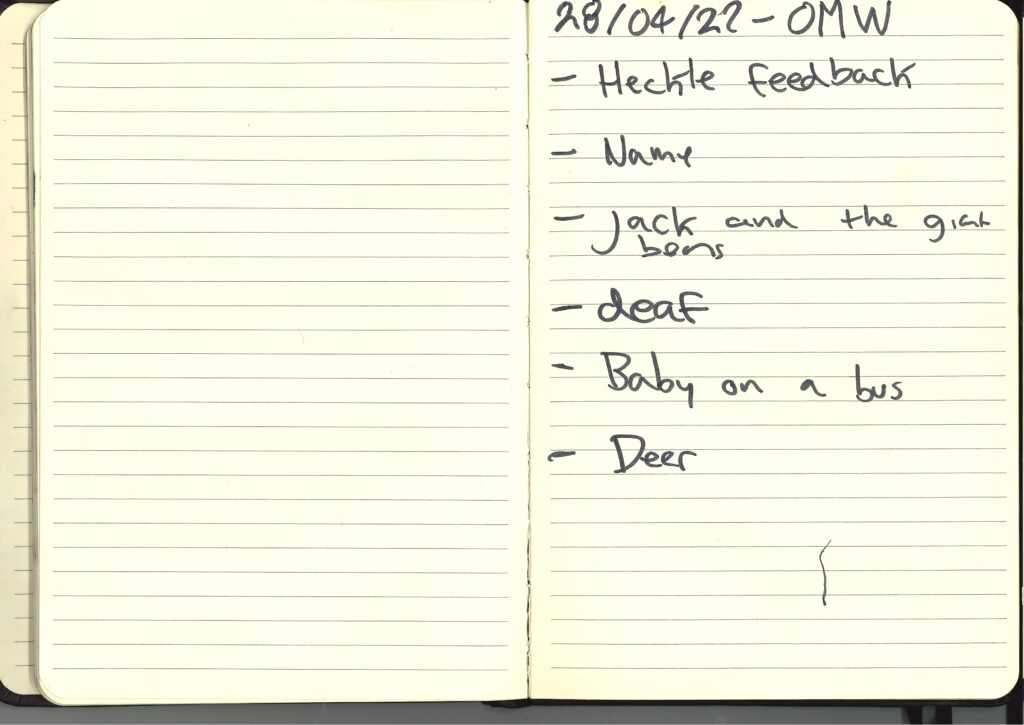 28/04/22 - OMW
- Heckle feedback
- Name
- Jack and the giat
beans
- deaf
- Baby on a bus
- Deer